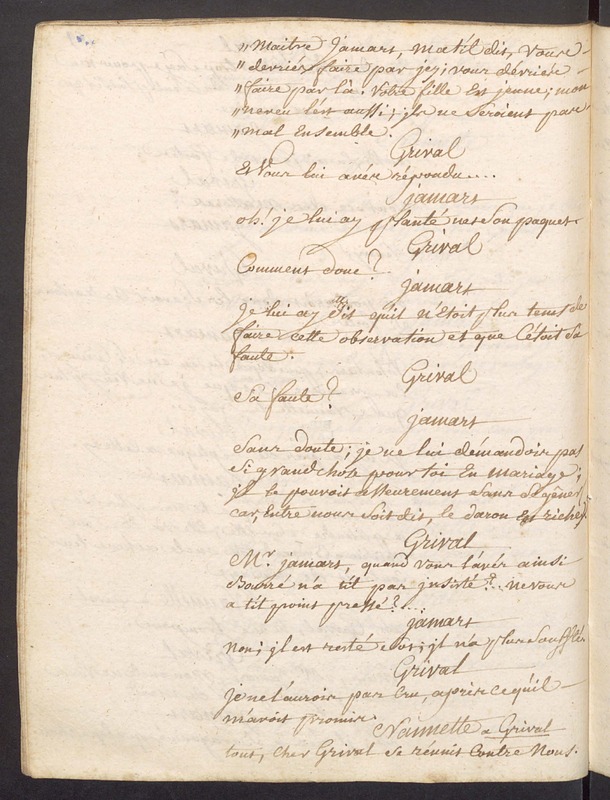 "Maitre jamars, matil dit, vous
"devriés faire par jcy; vous dévriés
"faire par là. Votre fille Est jeune; mon
"neveu l'est aussi; jls ne Seroient pas
"mal Ensemble.
Grival
Et Vous lui avés répondu....
jamars
oh! je lui ay planté net Son paquet.
Grival
Comment donc?
jamars
Je lui ay dit quil n'Etoit plus tems de
faire cette observation et que C'étoit Sa
faute.
Grival
Sa faute?
jamars
Sans doute; je ne lui démandois pas
Si grand chose pour toi En mariage;
jl le pouvoit asseurement Sans se gêner
car, Entre nous Soit dit, le daron Est riche.
Grival
Mr. jamars, quand Vous l'avés ainsi
Bourré n'a til pas jnsisté?.. ne vous
a tit moins pressé?...
jamars
non; jl est resté sot; jl n'a plus Soufflé.
Grival
je ne l'aurois pas Cru, après ce qu'il
m'avoit promis.
Nannette a Grival
tout, cher Grival Se réunit Contre Nous.